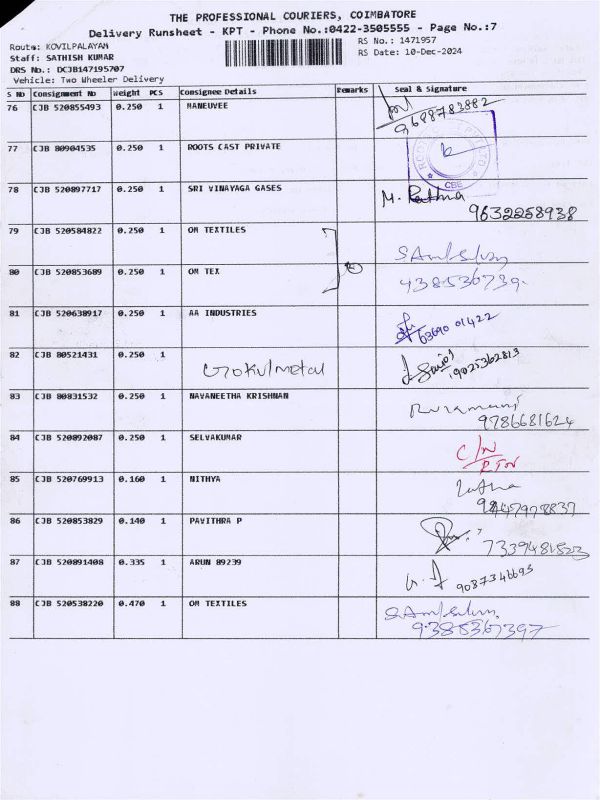 THE PROFESSIONAL COURIERS, COIMBATORE
Delivery Runsheet - KPT - Phone No.:0422-3505555 - Page No.:7
Route: KOVILPALAYAM
RS No.: 1471957
Staff: SATHISH KUMAR
RS Date: 10-Dec-2024
DRS No.: DCJB147195707
Vehicle: Two Wheeler Delivery
S No Consignment No Weight PCS Consignee Details Remarks Seal & Signature
76 CJB 520855493 0.250 1 MANEUVEE 9688783882
77 CJB 80904535 0.250 1 ROOTS CAST PRIVATE CBE
78 CJB 520897717 0.250 1 SRI VINAYAGA GASES M. Rathna
9632258938
79 CJB 520584822 0.250 1 OM TEXTILES
80 CJB 520853689 0.250 1 OM TEX
81 CJB 520638917 0.250 1 AA INDUSTRIES 63690 01422
82 CJB 80521431 0.250 1 Gokul metal 9025362813
83 CJB 80831532 0.250 1 NAVANEETHA KRISHNAN
9786681624
84 CJB 520892087 0.250 1 SELVAKUMAR C/N
RTN
85 CJB 520769913 0.160 1 NITHYA
86 CJB 520853829 0.140 1 PAVITHRA P
87 CJB 520891408 0.335 1 ARUN 89239 9087346693
88 CJB 520538220 0.470 1 OM TEXTILES
9385367397